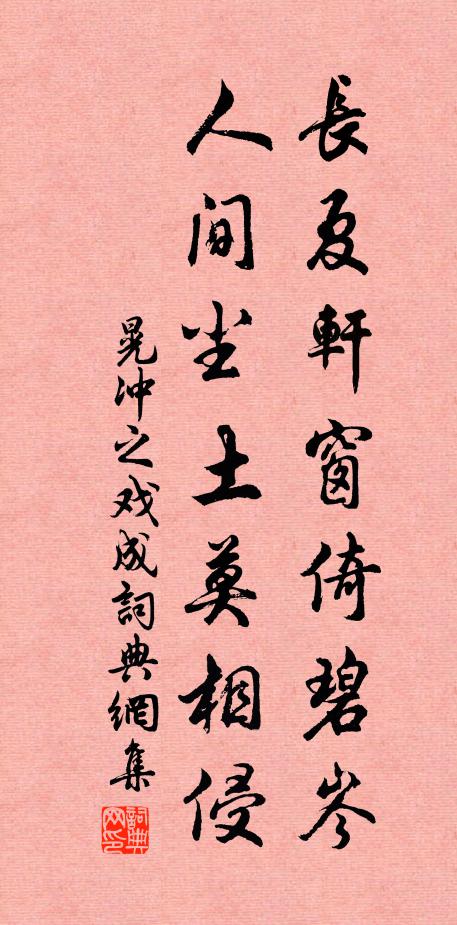 長夏軒窗倚碧岑
人间尘土莫相侵
晁冲之戏成詞典網集
詞典网印